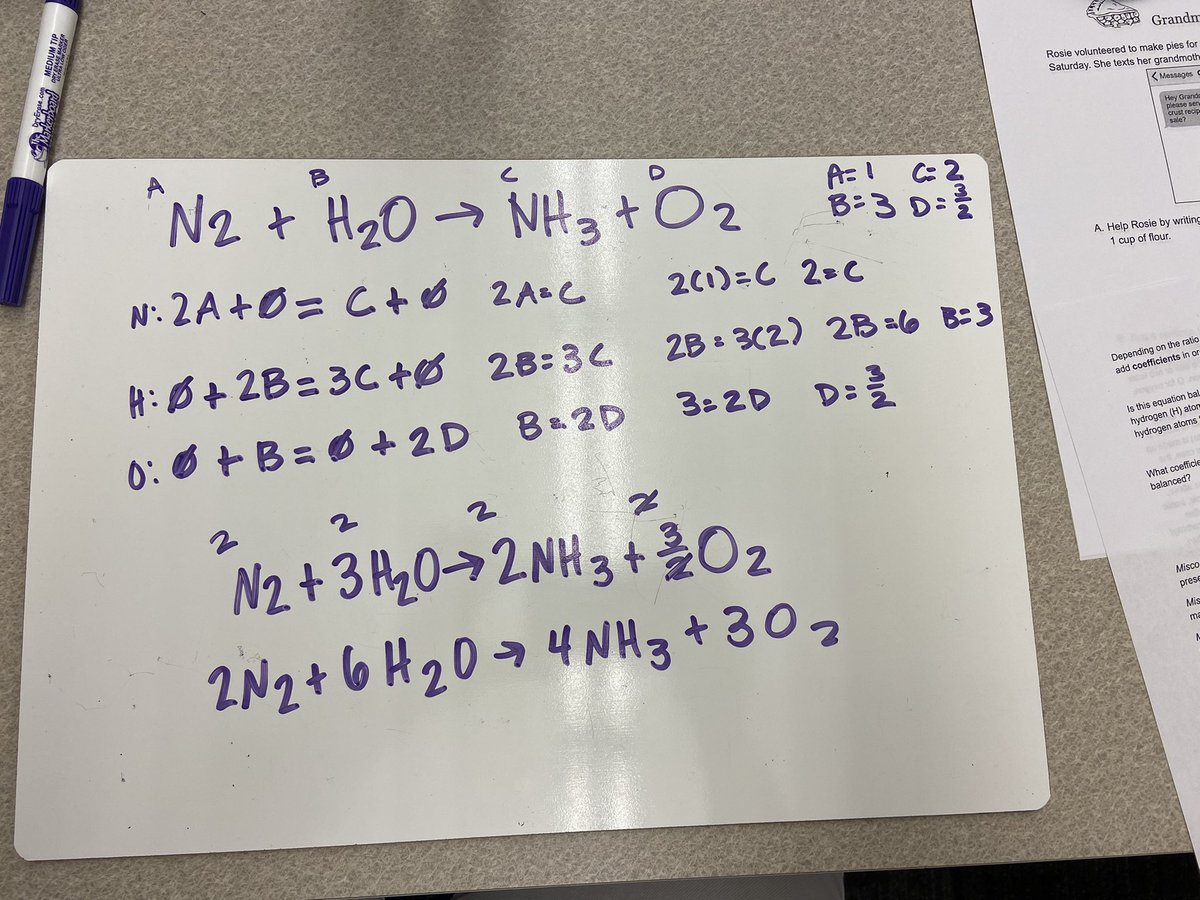 DryErase.com MEDIUM TIP
Markerboard DRY ERASE MARKER
ULTRA LOW ODOR
A B C D
N2 + H2O → NH3 + O2
A=1 C=2
B=3 D=3/2
N: 2A+∅= C+∅ 2A=C 2(1)=C 2=C
H: ∅+2B=3C+∅ 2B=3C 2B=3(2) 2B=6 B=3
O: ∅+B=∅+2D B=2D 3=2D D=3/2
2 2 2 2
N2+3H2O→2NH3+3/2O2
2N2+6H2O→4NH3+3O2
Grandm
Rosie volunteered to make pies for
Saturday. She texts her grandmoth
Messages
Hey Grand
please sen
crust recip
sale?
A. Help Rosie by writing
1 cup of flour.
Depending on the ratio
add coefficients in or
Is this equation bal
hydrogen (H) atom
hydrogen atoms
What coefficie
balanced?
Misco
prese
Mis
ma